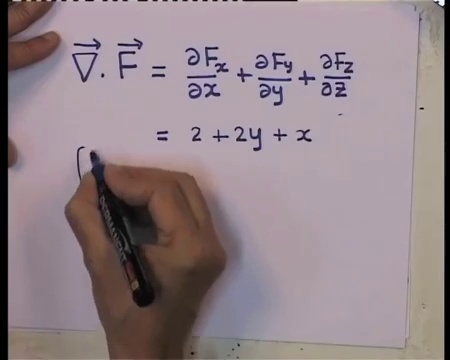 ∇⃗ . F⃗ = ∂Fx/∂x + ∂Fy/∂y + ∂Fz/∂z
= 2 + 2y + x